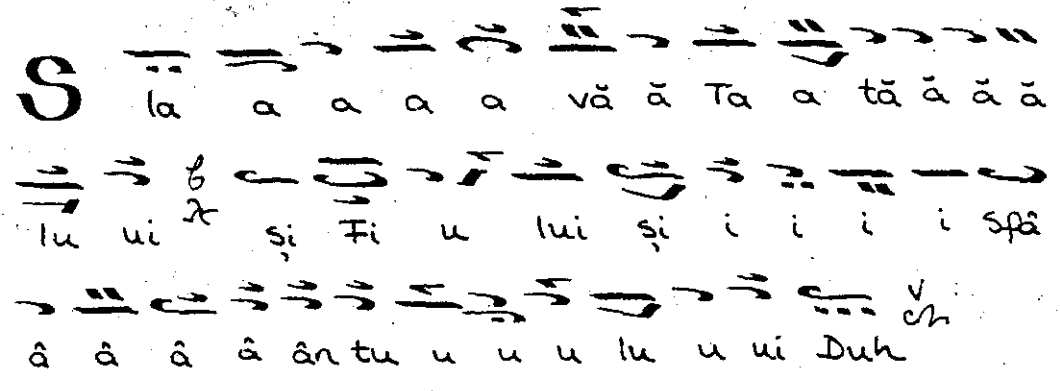 S la a a a a vă ă Ta a tă ă ă ă
lu ui și Fi u lui și i i i i Sfâ
â â â â ân tu u u u lu u ui Duh